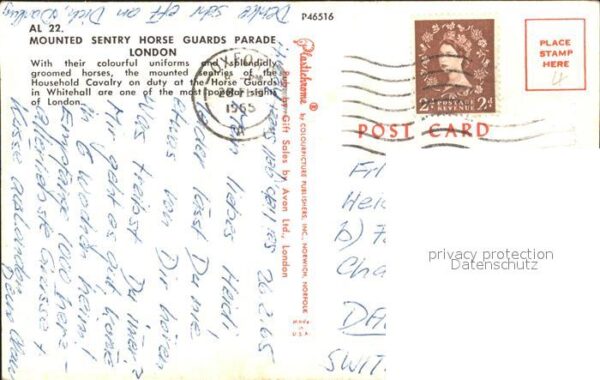 Denke sehr oft an Dich, Darling
AL 22.
MOUNTED SENTRY HORSE GUARDS PARADE
LONDON
With their colourful uniforms and splendidly
groomed horses, the mounted sentries of the
Household Cavalry on duty at the Horse Guards
in Whitehall are one of the most popular sights
of London.
P46516
Plastichrome ®
by COLOURPICTURE PUBLISHERS, INC., NORWICH, NORFOLK
MADE U.S.A.
Pub. by Gift Sales by Avon Ltd., London
1965
POSTAGE
REVENUE
2D 2D
PLACE
STAMP
HERE
4
POST CARD
26.2.65
Mein liebes Heidi,
lässt Du mich
etwas von Dir hören
Was treibst Du immer?
Mir geht es gut, komme
in 6 Wochen heim!
Empfange 1000 herz-
Grüsse +
Küsse aus London
Dein
Heid
b)
privacy protection
Datenschutz
SWIT